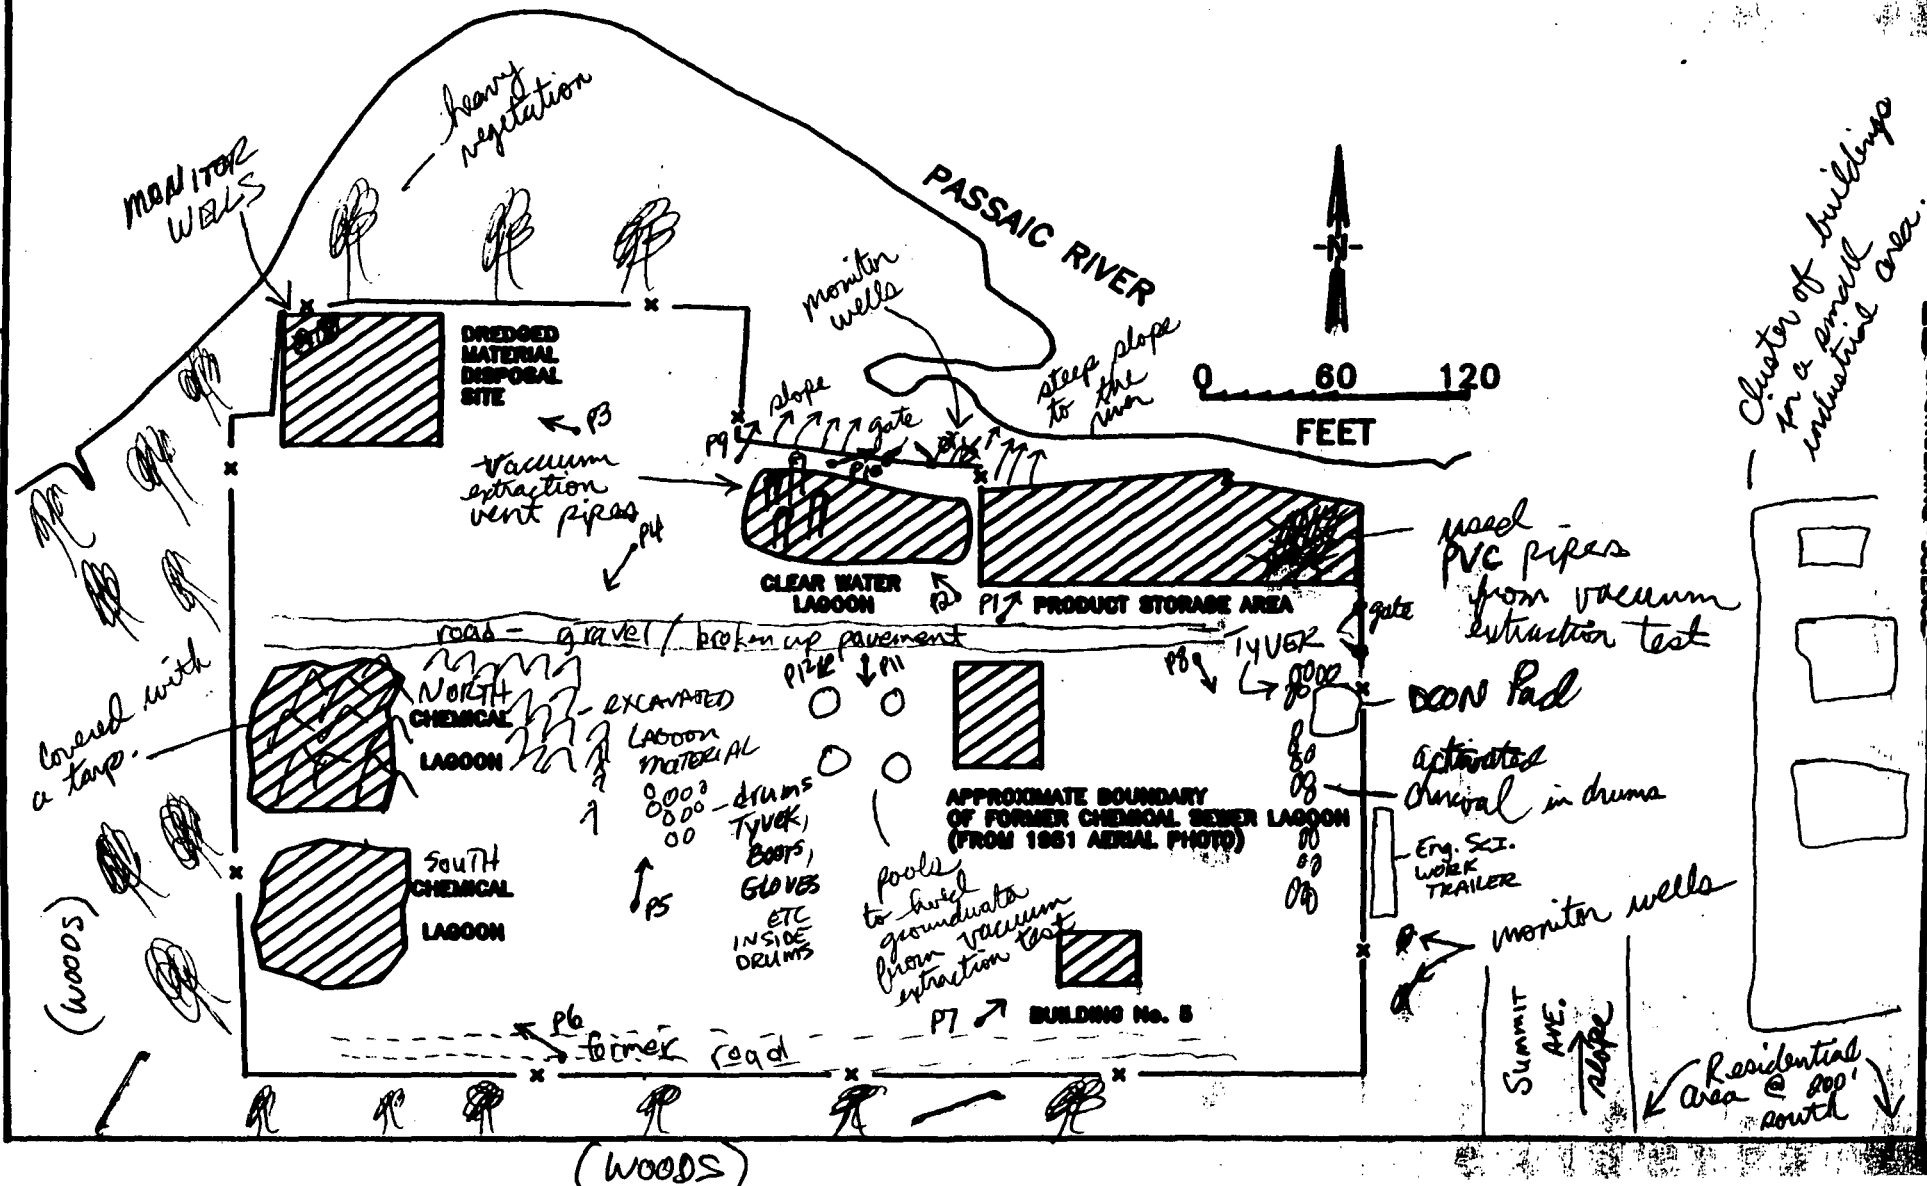 heavy
vegetation
MONITOR
WELLS
PASSAIC RIVER
N
0 60 120
FEET
Cluster of buildings
in a small
industrial area.
monitor
wells
steep slope
to the
river
DREDGED
MATERIAL
DISPOSAL
SITE
P3
slope
P9
gate
P10
Vacuum
extraction
vent pipes
P4
CLEAR WATER
LAGOON
P2
P1
PRODUCT STORAGE AREA
used
PVC pipes
from vacuum
extraction test
gate
road - gravel / broken up pavement
P12
P11
P8
TYVEK
DCON Pad
covered with
a tarp.
NORTH
CHEMICAL
LAGOON
EXCAVATED
LAGOON
MATERIAL
drums
Tyvek,
Boots,
GLOVES
ETC
INSIDE
DRUMS
APPROXIMATE BOUNDARY
OF FORMER CHEMICAL SEWER LAGOON
(FROM 1961 AERIAL PHOTO)
activated
charcoal in drums
Eng. Sci.
WORK
TRAILER
SOUTH
CHEMICAL
LAGOON
P5
pools
to hold
groundwater
from vacuum
extraction test
monitor wells
(WOODS)
P6
former road
P7
BUILDING No. 5
SUMMIT
AVE.
slope
Residential
area @ 200'
south
(WOODS)